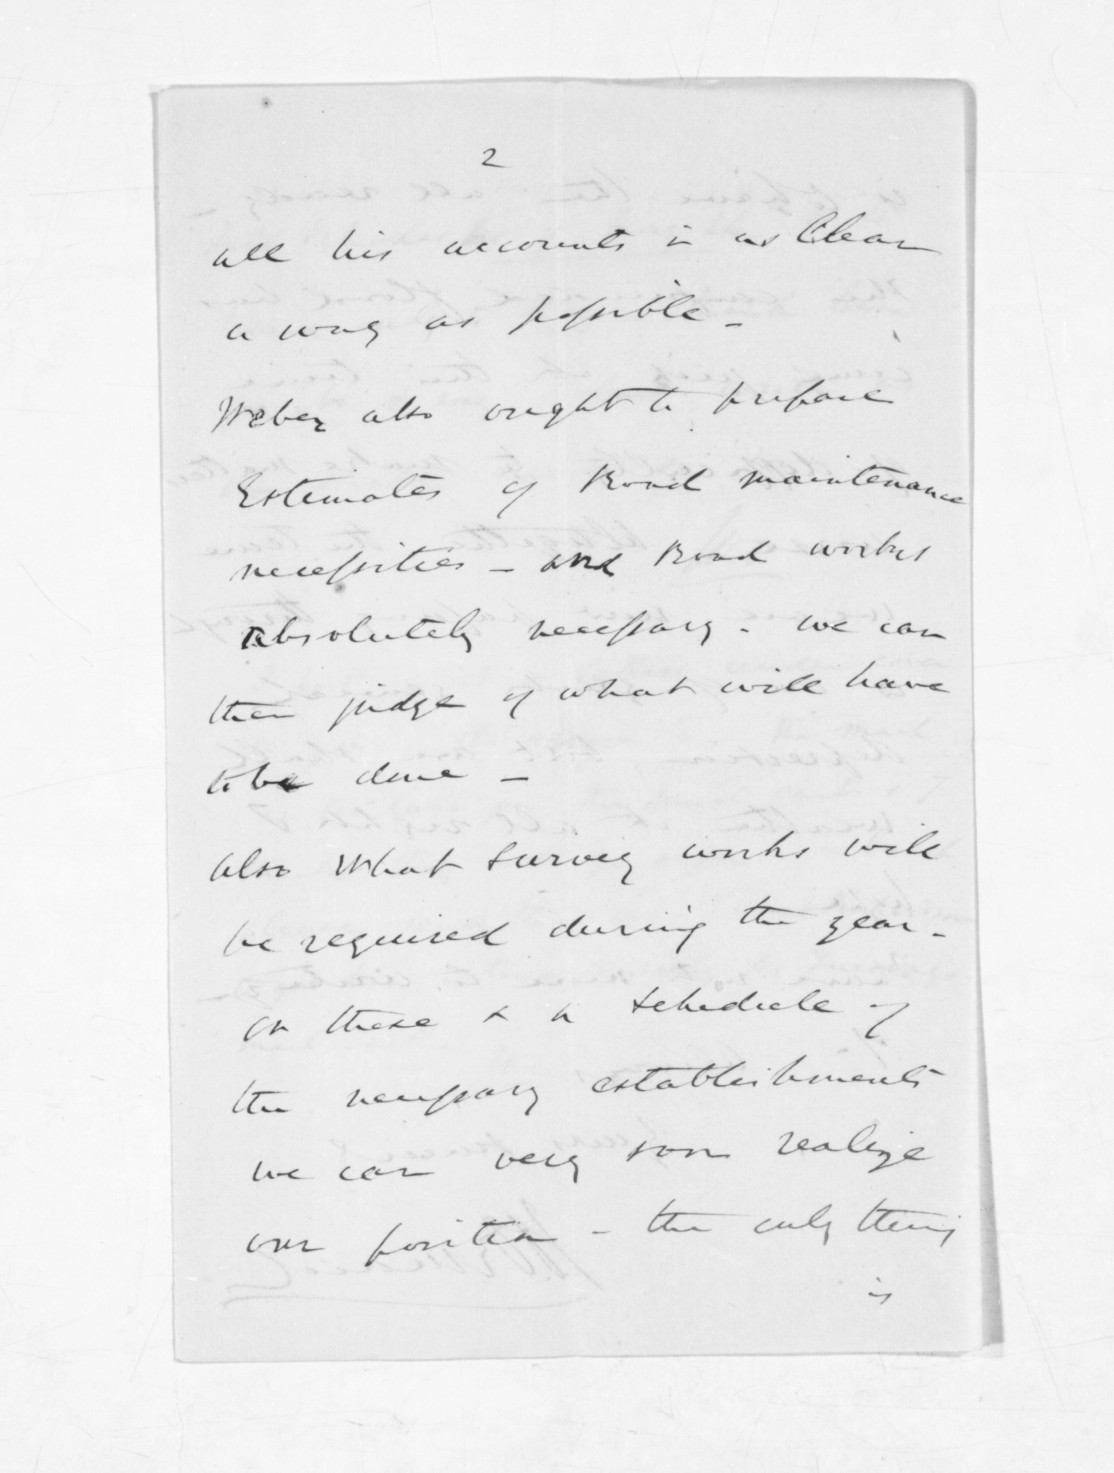 2
all his accounts in as Clear
a way as possible -
Weber also ought to prepare
Estimates of Road maintenance
necessities - and Road works
absolutely necessary. we can
then judge of what will have
to be done -
also What Survey works will
be required during the year -
on these & a Schedule of
the necessary establishments
we can very soon realize
our position - the only thing
is